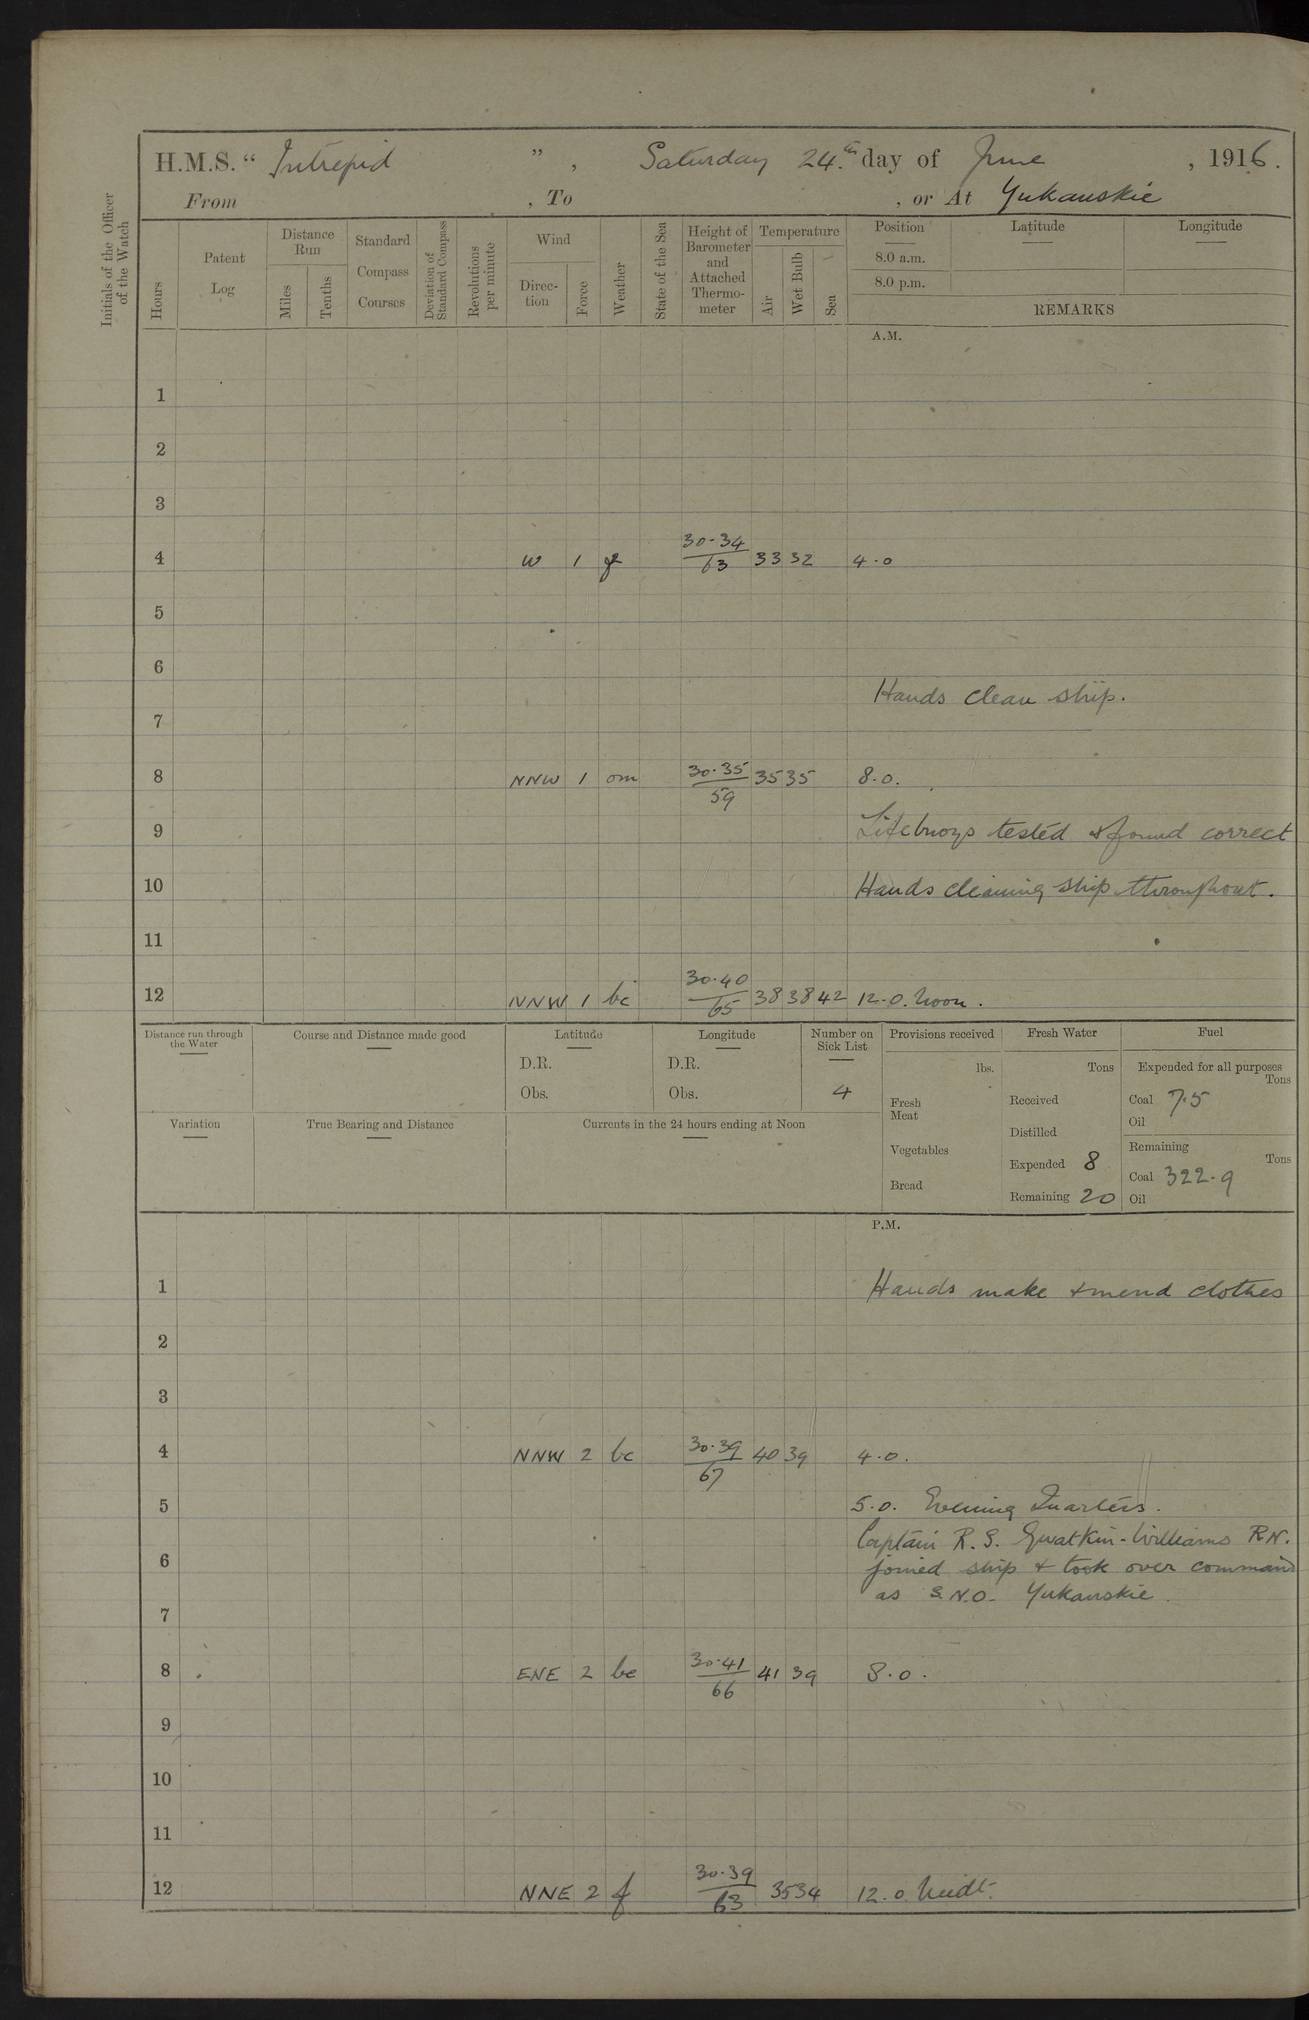 H.M.S. “ Intrepid ” , Saturday 24.th day of June , 1916.
From , To , or At Yukanskie
Initials of the Officer of the Watch
Hours
Patent Log
Distance Run
Miles
Tenths
Standard Compass Courses
Deviation of Standard Compass
Revolutions per minute
Wind
Direc-tion
Force
Weather
State of the Sea
Height of Barometer and Attached Thermo-meter
Temperature
Air
Wet Bulb
Sea
Position
Latitude
Longitude
8.0 a.m.
8.0 p.m.
REMARKS
A.M.
1
2
3
4 W 1 30.34 / 63 33 32 4.0
5
6
Hands clean ship.
7
8 NNW 1 om 30.35 / 59 35 35 8.0.
9 Lifebuoys tested & found correct
10 Hands cleaning ship throughout.
11
12 NNW 1 bc 30.40 / 65 38 38 42 12.0. Noon.
Distance run through the Water
Course and Distance made good
Latitude
D.R.
Obs.
Longitude
D.R.
Obs.
Number on Sick List
4
Provisions received
lbs.
Fresh Meat
Vegetables
Bread
Fresh Water
Tons
Received
Distilled
Expended 8
Remaining 20
Fuel
Expended for all purposes
Tons
Coal 7.5
Oil
Remaining
Tons
Coal 322.9
Oil
Variation
True Bearing and Distance
Currents in the 24 hours ending at Noon
P.M.
1 Hands make & mend clothes
2
3
4 NNW 2 bc 30.39 / 67 40 39 4.0.
5 5.0. Evening Quarters.
Captain R. S. Gwatkin-Williams R.N.
6 joined ship & took over command
as S.N.O. Yukanskie.
7
8 ENE 2 bc 30.41 / 66 41 39 8.0.
9
10
11
12 NNE 2 f 30.39 / 63 35 34 12.0. Midt.